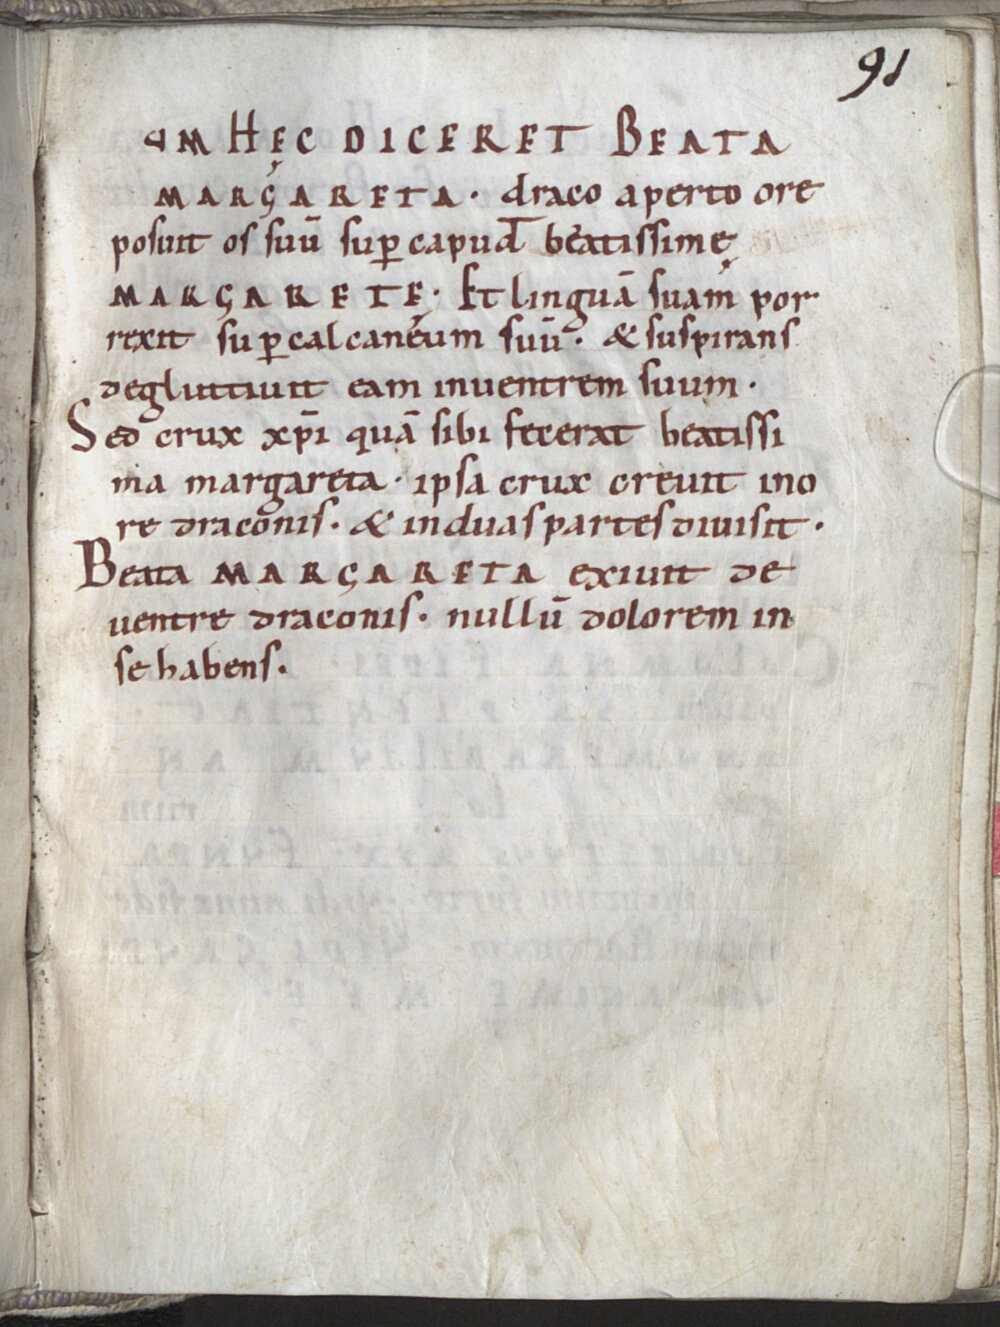 91
UM HĘC DICERET BEATA
MARGARETA. draco aperto ore
posuit os suū sup̱ capud beatissimę
MARGARETĘ. Et linguā suam por
rexit sup̱ calcaneum suū. & suspirans
degluttiuit eam inuentrem suum.
Sed crux xp̄i quā sibi fecerat beatissi
ma margareta. ipsa crux creuit ino
re draconis. & induas partes diuisit.
Beata MARGARETA exiuit de
uentre draconis. nullū dolorem in
se habens.